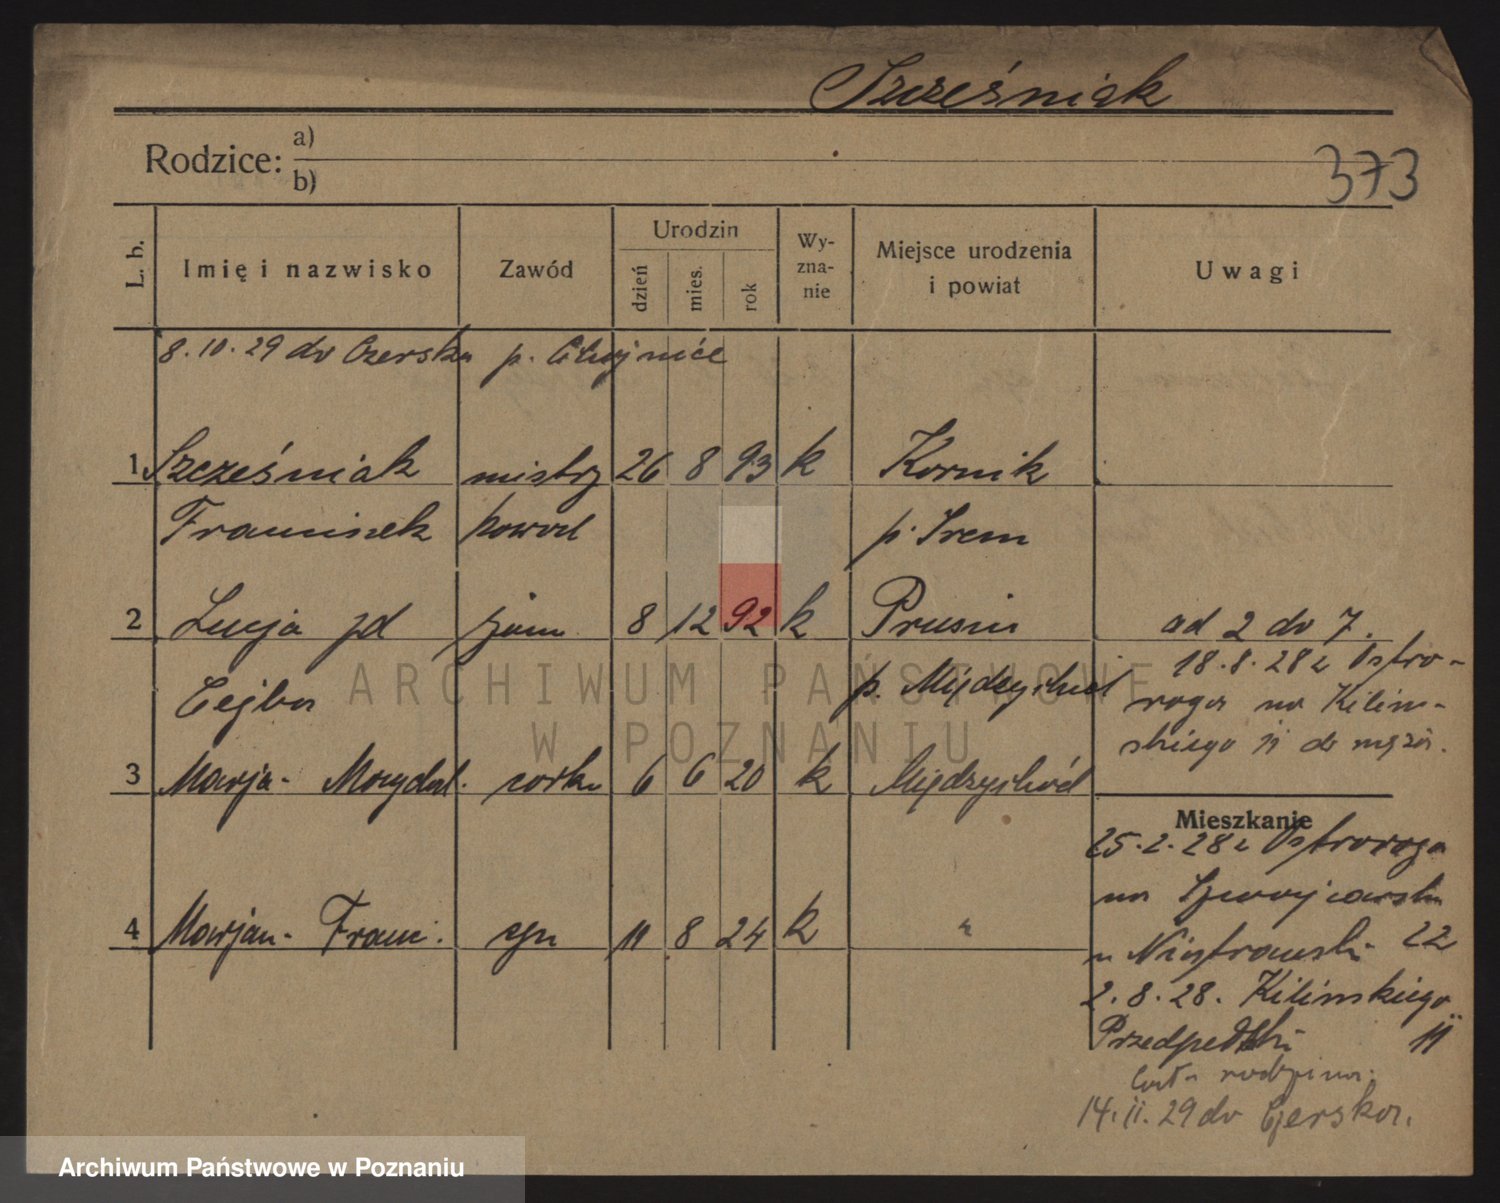 Szcześniak
373
Rodzice: a)
b)
L. b. Imię i nazwisko Zawód Urodzin dzień mies. rok Wy-zna-nie Miejsce urodzenia i powiat Uwagi
8.10.29 do Czerska p. Chojnice
1 Szcześniak mistrz 26 8 93 k Kornik
Franciszek kowal p. Śrem
2 Lucja zd żona 8 12 92 k Prusim ad 2 do 7.
Cejba p. Międzychód 18.8.28 z Ostro-
roga na Kiliń-
skiego 11 do męża.
3 Marja- Magdal. córka 6 6 20 k Międzychód
Mieszkanie
25.2.28 z Ostroroga
na
4 Marjan- Franc. syn 11 8 24 k "
22
2.8.28. Kilińskiego
11
cała rodzina.
14.11.29 do Czerska.
ARCHIWUM PAŃSTWOWE
W POZNANIU
Archiwum Państwowe w Poznaniu